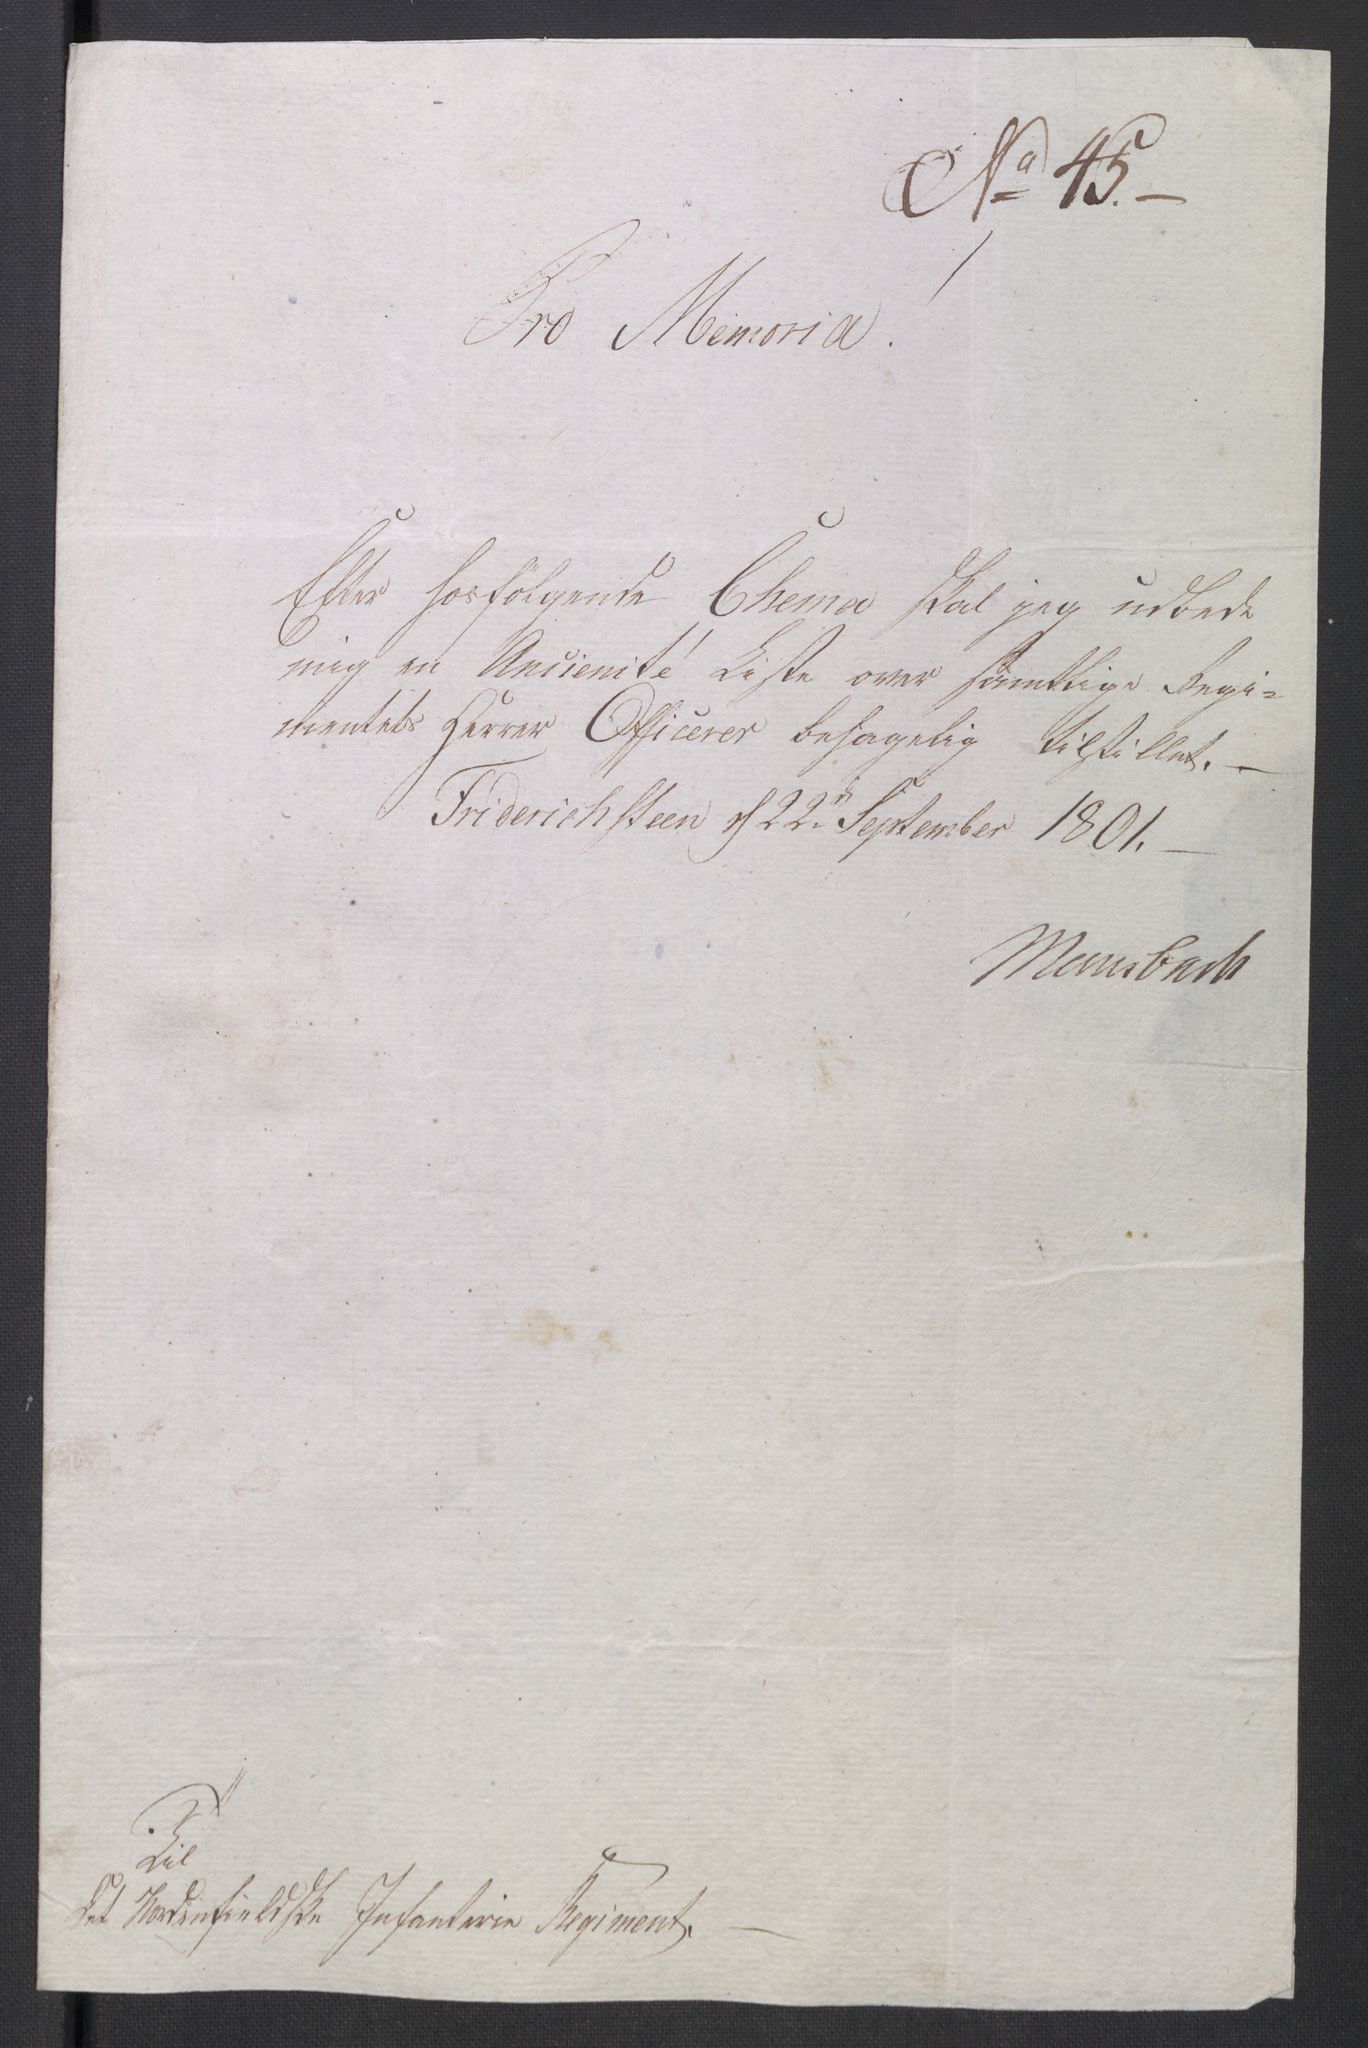 No 45.
Pro Memoria!
Efter hosfölgende Chema skal jeg udbede
mig en Ancienité Liste over sämtlige Regi=
mentets Herrer Officerer behagelig tilstillet. —
Friderichsteen d 22de September 1801. —
Mansbach
Til
Det Nordenfieldske Infanterie Regiment. —